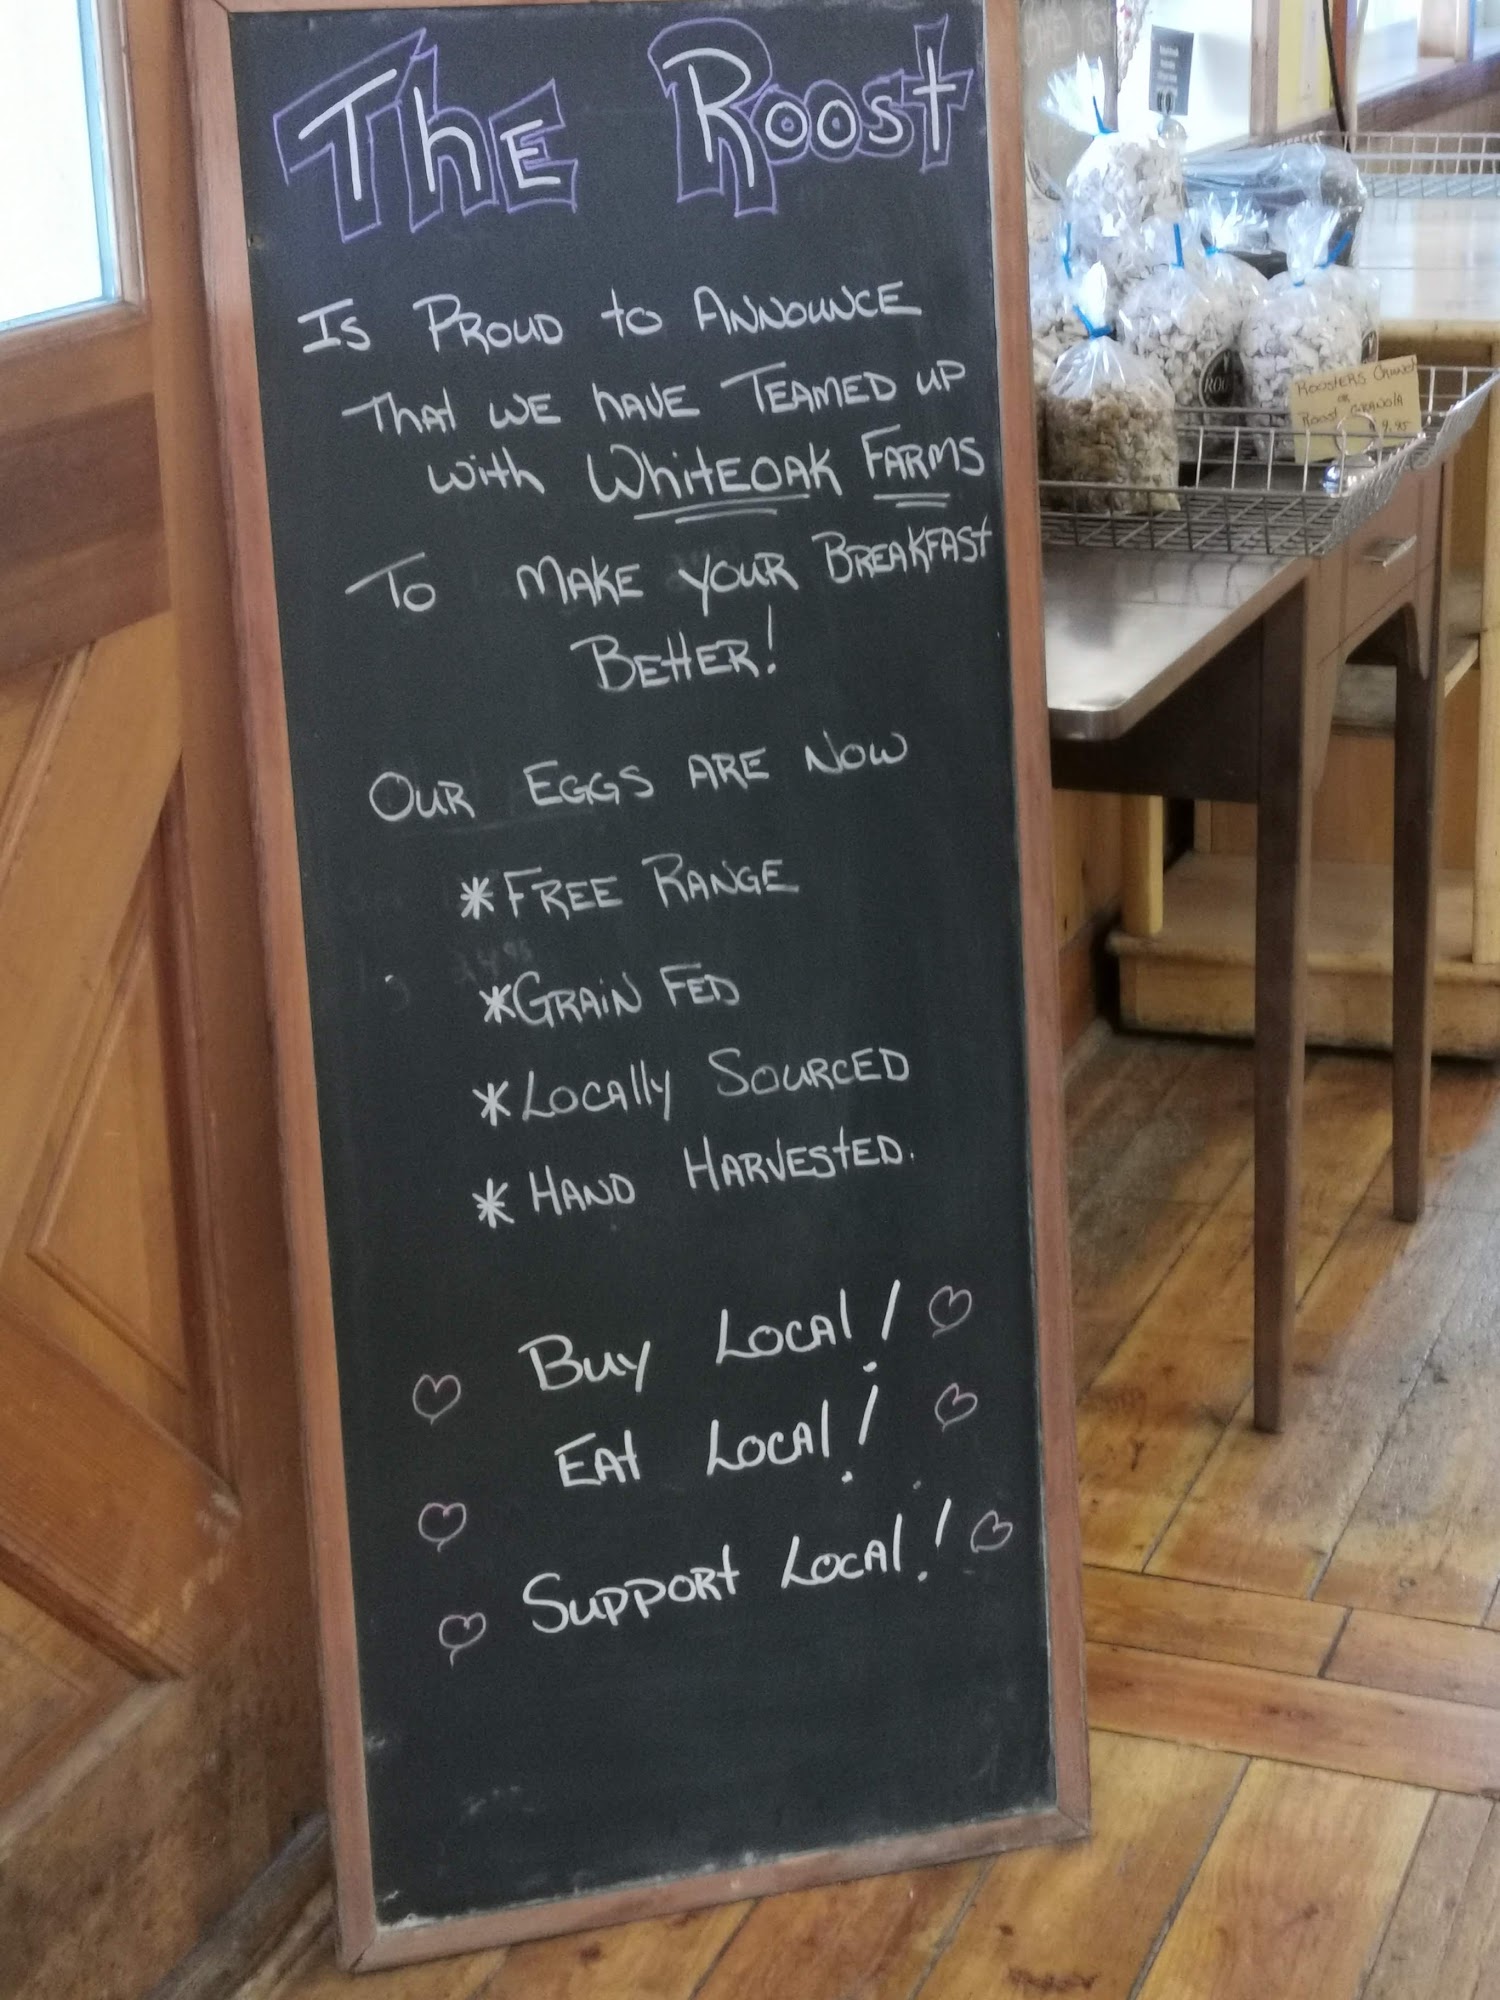 The Roost
Is Proud to Announce
That we have Teamed up
with Whiteoak Farms
To make your Breakfast
Better!
Our Eggs are Now
*Free Range
*Grain Fed
*Locally Sourced
*Hand Harvested.
Buy Local!
Eat Local!
Support Local!
Roosters Crunch
or
Roost Granola
9.95